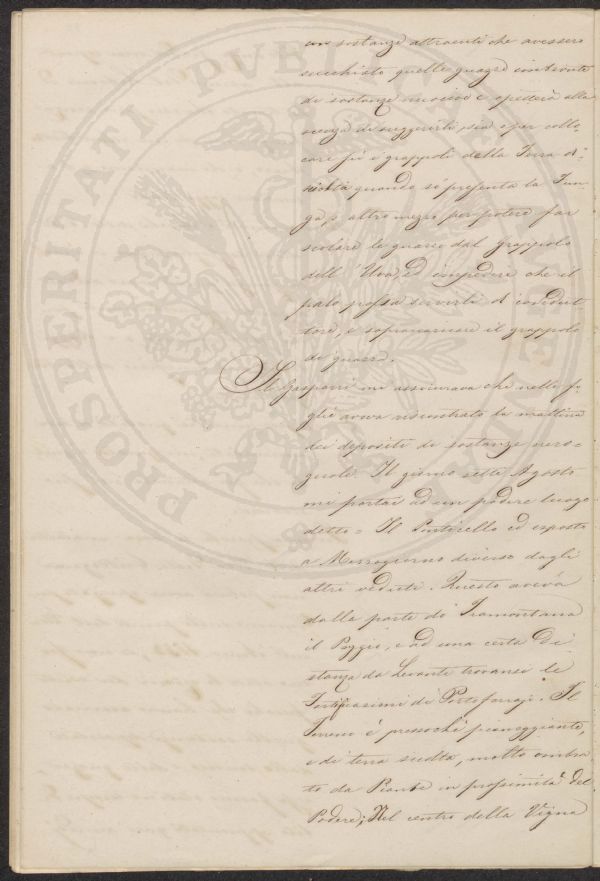 con sostanze attraenti che avessero
succhiato quelle guazze
di sostanze nocive e spetterà alla
scienza di suggerirli, sia o per collo-
care fù i grappoli della Terra di-
quando si presenta la Fun-
ga, o altro mezzo per potere far
scolare le guazze dal grappolo
dell' Uva, ed impedire che il
palo possa servirle di condut-
tore, e sopracaricare il grappolo
di guazza.
Il Gasparri mi assicurava che nelle fo-
glie aveva riscontrato la mattina
dei depositi di sostanze nero=
gnole. Il giorno sette Agosto
mi portai ad un podere luogo
detto = Il Ponticello ed esposto
a Mezzogiorno diverso dagli
altri veduti. Questo aveva
dalla parte di Tramontana
il Poggio, e ad una certa Di
stanza da Levante trovansi le
Fortificazioni di Portoferrajo. Il
Terreno è pressochè pianeggiante,
e di terra sciolta, molto ombra
to da Piante in prossimità del
Podere; Nel centro della Vigna
PROSPERITATI PUBLICAE AUGENDAE